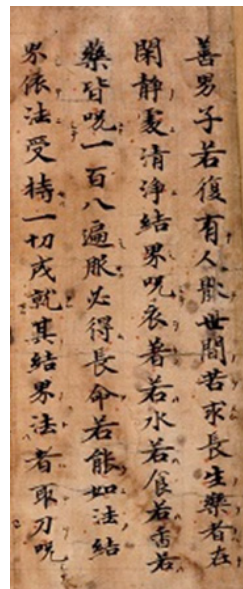 善男子若復有人猒世間苦求長生樂者在
閑靜處清淨結界呪衣著若水若食若香若
藥皆呪一百八遍服必得長命若能如法結
界依法受持一切成就其結界法者取刀呪